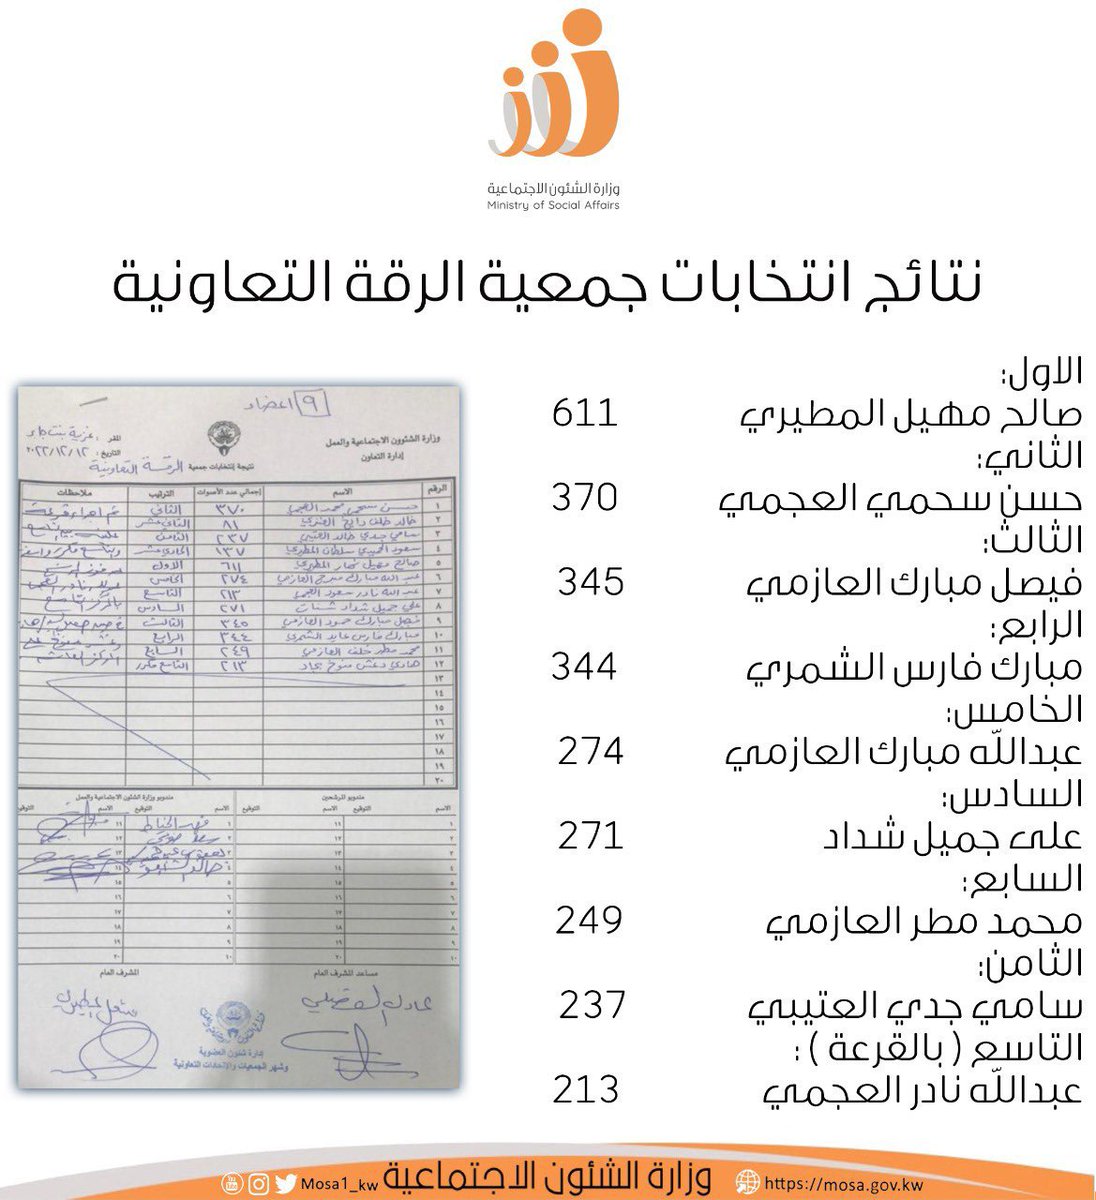 وزارة الشئون الاجتماعية
Ministry of Social Affairs
نتائج انتخابات جمعية الرقة التعاونية
الاول:
صالح مهيل المطيري 611
الثاني:
حسن سحمي العجمي 370
الثالث:
فيصل مبارك العازمي 345
الرابع:
مبارك فارس الشمري 344
الخامس:
عبدالله مبارك العازمي 274
السادس:
على جميل شداد 271
السابع:
محمد مطر العازمي 249
الثامن:
سامي جدي العتيبي 237
التاسع ( بالقرعة ) :
عبدالله نادر العجمي 213
٩ اعضاء
وزارة الشئوون الاجتماعية والعمل
إدارة التعاون
المقر :
التاريخ : ٢٠٢٢/١٢/١٢
نتيجة إنتخابات جمعية الرقة التعاونية
الرقم الاسم إجمالي عدد الأصوات الترتيب ملاحظات
١ حسن سحمي محمد العجمي ٣٧٠ الثاني
٢ ٨١ الثاني عشر
٣ سامي جدي خالد العتيبي ٢٣٧ الثامن
٤ سعود الحميدي سلطان المطيري ١٣٧ الحادي عشر
٥ صالح مهيل المطيري ٦١١ الاول
٦ عبدالله مبارك العازمي ٢٧٤ الخامس
٧ عبدالله نادر سعود العجمي ٢١٣ التاسع
٨ علي جميل شداد ٢٧١ السادس
٩ فيصل مبارك حمود العازمي ٣٤٥ الثالث
١٠ مبارك فارس عايد الشمري ٣٤٤ الرابع
١١ محمد مطر خلف العازمي ٢٤٩ السابع
١٢ هادي ٢١٣ التاسع مكرر
١٣
١٤
١٥
١٦
١٧
١٨
١٩
٢٠
مندوبو المرشحين
مندوبو وزارة الشئون الاجتماعية والعمل
الاسم التوقيع الاسم التوقيع
مساعد المشرف العام
المشرف العام
إدارة شئون العضوية
وشهر الجمعيات والإتحادات التعاونية
Mosa1_kw
وزارة الشئون الاجتماعية
https://mosa.gov.kw